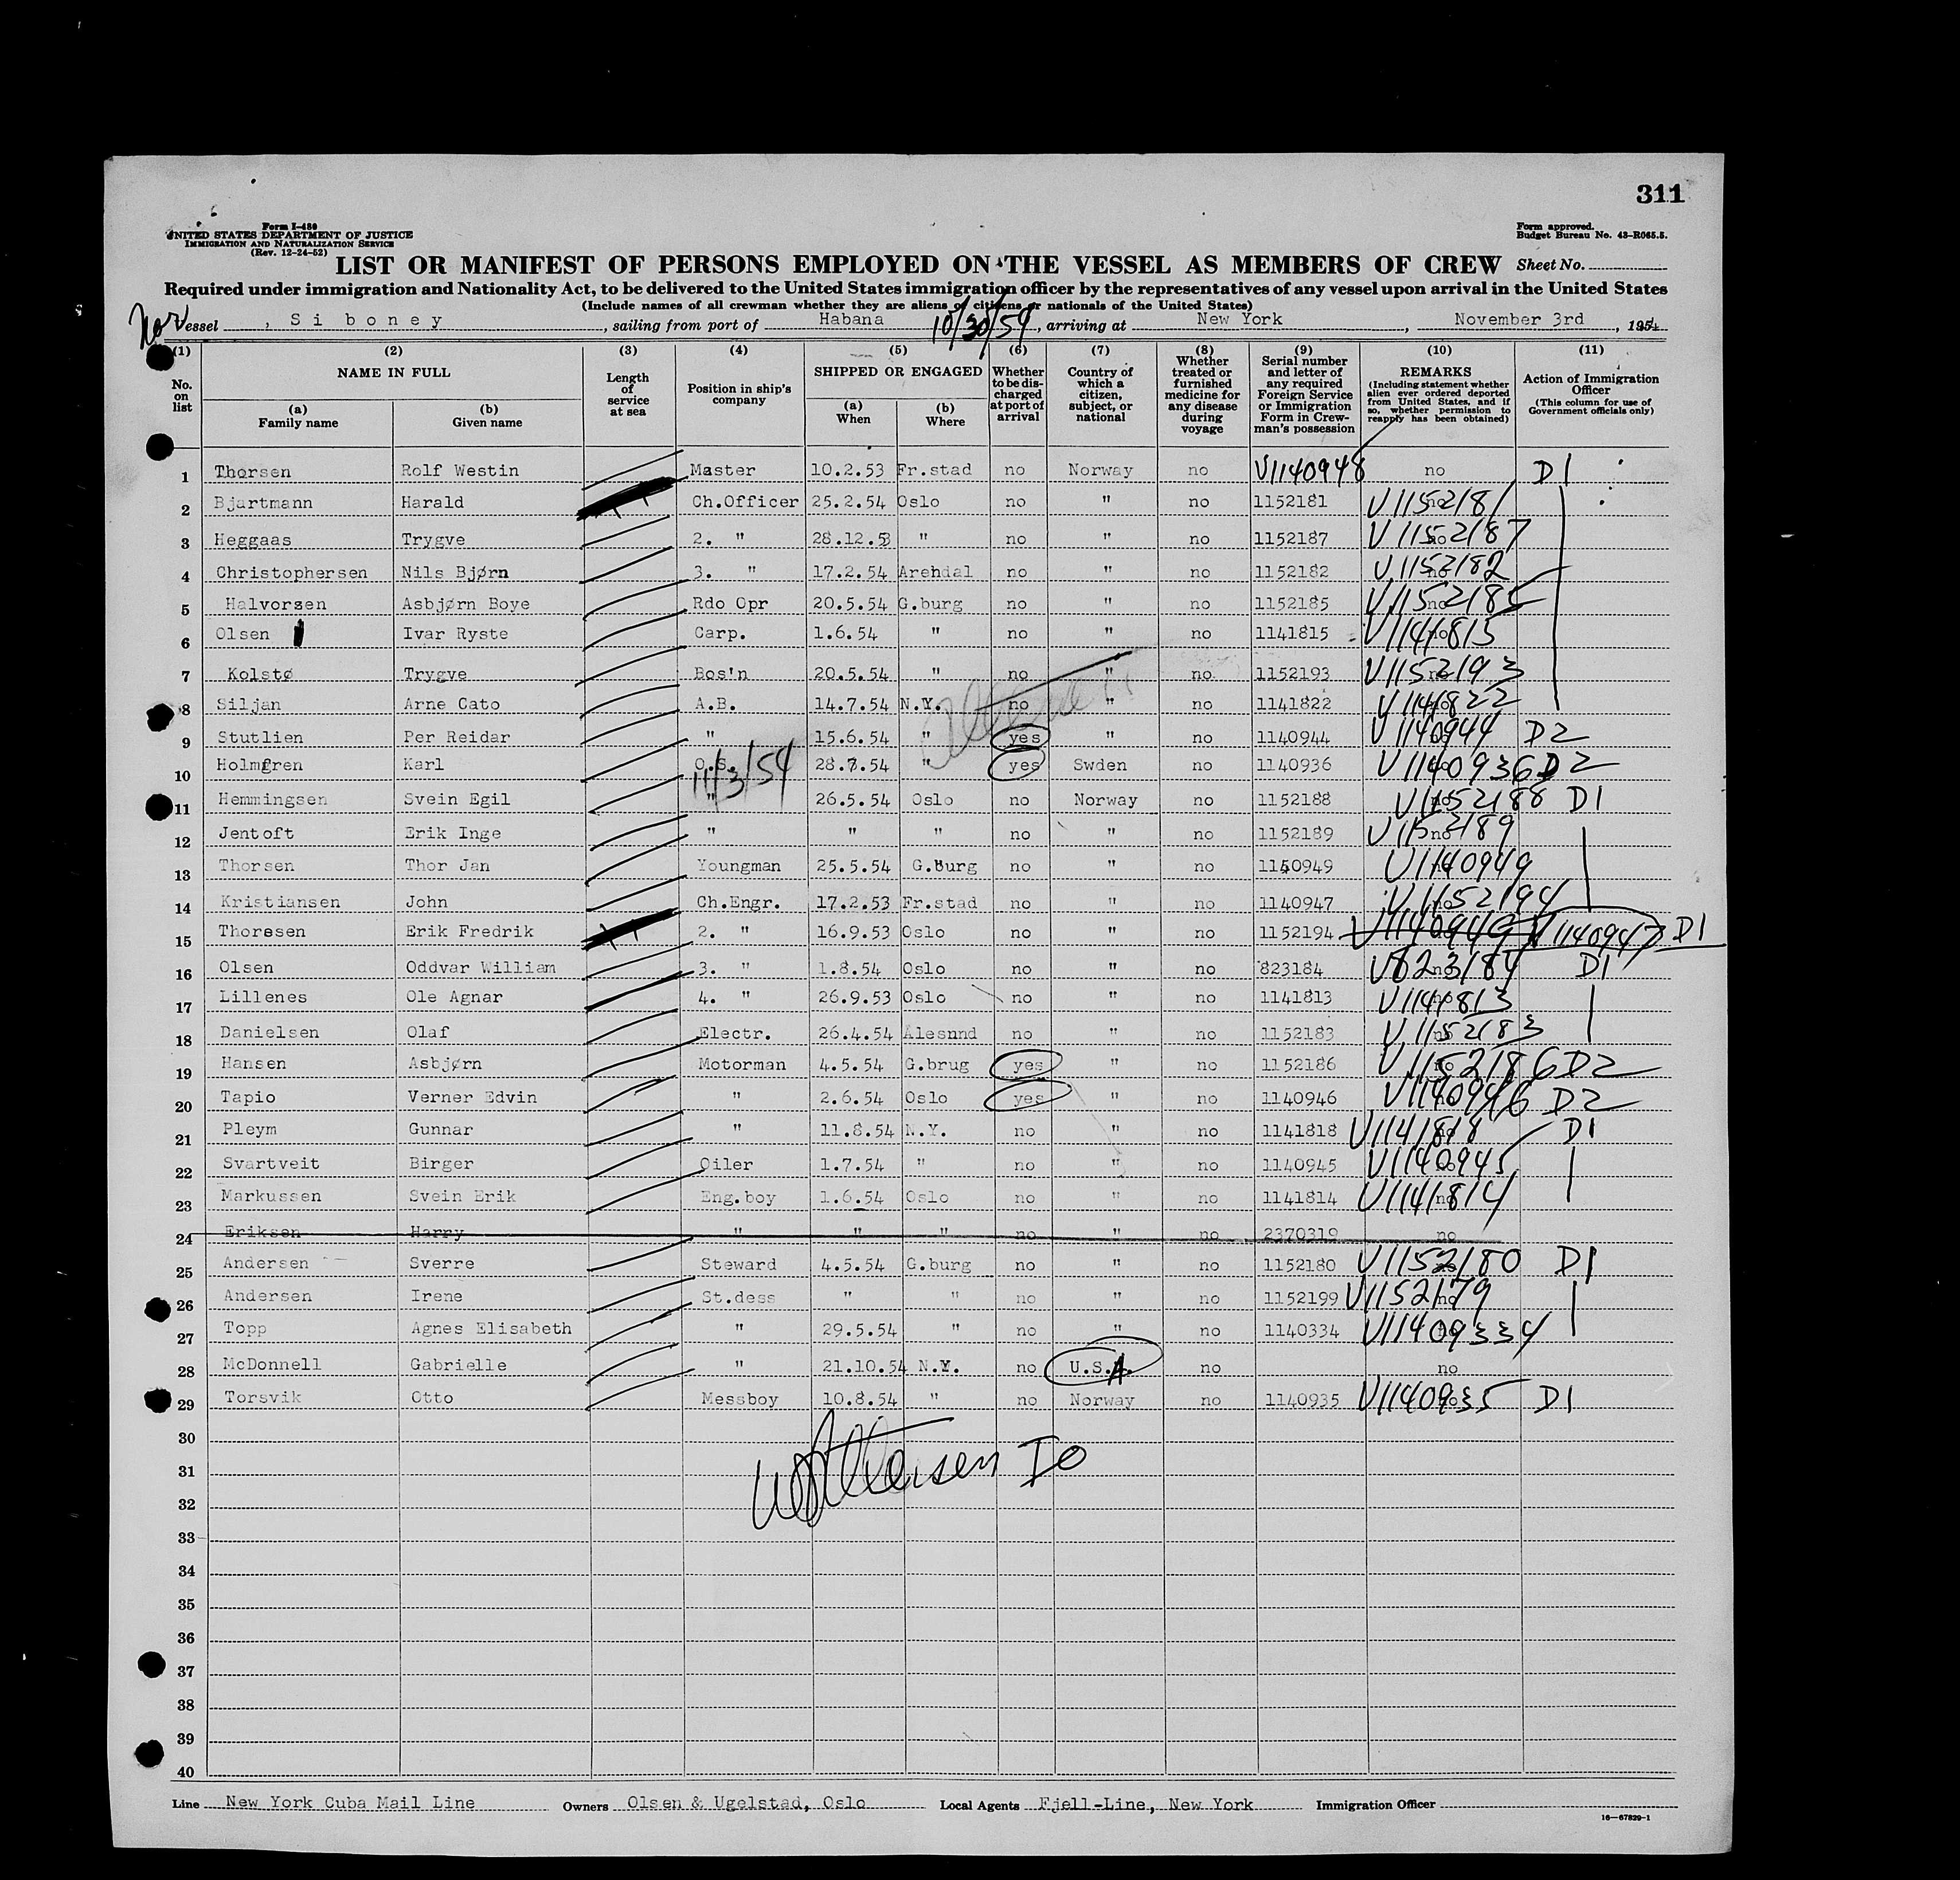 311
Form I-480
UNITED STATES DEPARTMENT OF JUSTICE
IMMIGRATION AND NATURALIZATION SERVICE
(Rev. 12-24-52)
Form approved.
Budget Bureau No. 43-R065.5.
LIST OR MANIFEST OF PERSONS EMPLOYED ON THE VESSEL AS MEMBERS OF CREW Sheet No.
Required under immigration and Nationality Act, to be delivered to the United States immigration officer by the representatives of any vessel upon arrival in the United States
(Include names of all crewman whether they are aliens or citizens or nationals of the United States)
Nor Vessel , Siboney , sailing from port of Habana 10/30/54, arriving at New York , November 3rd , 1954
(1) No. on list (2) NAME IN FULL (a) Family name (b) Given name (3) Length of service at sea (4) Position in ship's company (5) SHIPPED OR ENGAGED (a) When (b) Where (6) Whether to be discharged at port of arrival (7) Country of which a citizen, subject, or national (8) Whether treated or furnished medicine for any disease during voyage (9) Serial number and letter of any required Foreign Service or Immigration Form in Crewman's possession (10) REMARKS (Including statement whether alien ever ordered deported from United States, and if so, whether permission to reapply has been obtained) (11) Action of Immigration Officer (This column for use of Government officials only)
1 Thorsen Rolf Westin Master 10.2.53 Fr.stad no Norway no V1140948 no D1
2 Bjartmann Harald Ch.Officer 25.2.54 Oslo no " no 1152181 no V1152181
3 Heggaas Trygve 2. " 28.12.53 " no " no 1152187 no V1152187
4 Christophersen Nils Bjørn 3. " 17.2.54 Arehdal no " no 1152182 no V1152182
5 Halvorsen Asbjørn Boye Rdo Opr 20.5.54 G.burg no " no 1152185 no V1152185
6 Olsen Ivar Ryste Carp. 1.6.54 " no " no 1141815 no V1141815
7 Kolstø Trygve Bos'n 20.5.54 " no " no 1152193 no V1152193
8 Siljan Arne Cato A.B. 14.7.54 N.Y. no " no 1141822 no V1141822
9 Stutlien Per Reidar " 15.6.54 " yes " no 1140944 no V1140944 D2
10 Holmgren Karl O.S. 28.7.54 " yes Swden no 1140936 no V1140936 D2
11/3/54
11 Hemmingsen Svein Egil " 26.5.54 Oslo no Norway no 1152188 no V1152188 D1
12 Jentoft Erik Inge " " " no " no 1152189 no V1152189
13 Thorsen Thor Jan Youngman 25.5.54 G.Burg no " no 1140949 no V1140949
14 Kristiansen John Ch.Engr. 17.2.53 Fr.stad no " no 1140947 no V1152194
15 Thoresen Erik Fredrik 2. " 16.9.53 Oslo no " no 1152194 no V1140949 V1140947 D1
16 Olsen Oddvar William 3. " 1.8.54 Oslo no " no 823184 no V823184 D1
17 Lillenes Ole Agnar 4. " 26.9.53 Oslo no " no 1141813 no V1141813
18 Danielsen Olaf Electr. 26.4.54 Alesnnd no " no 1152183 no V1152183
19 Hansen Asbjørn Motorman 4.5.54 G.brug yes " no 1152186 no V1152186 D2
20 Tapio Verner Edvin " 2.6.54 Oslo yes " no 1140946 no V1140946 D2
21 Pleym Gunnar " 11.8.54 N.Y. no " no 1141818 no V1141818 D1
22 Svartveit Birger Oiler 1.7.54 " no " no 1140945 no V1140945
23 Markussen Svein Erik Eng.boy 1.6.54 Oslo no " no 1141814 no V1141814
24 Eriksen Harry " " " no " no 2370319 no
25 Andersen Sverre Steward 4.5.54 G.burg no " no 1152180 no V1152180 D1
26 Andersen Irene St.dess " " no " no 1152199 no V1152179
27 Topp Agnes Elisabeth " 29.5.54 " no " no 1140334 no V11409334
28 McDonnell Gabrielle " 21.10.54 N.Y. no U.S.A. no no
29 Torsvik Otto Messboy 10.8.54 " no Norway no 1140935 no V1140935 D1
30
31
32
33
34
35
36
37
38
39
40
Line New York Cuba Mail Line Owners Olsen & Ugelstad, Oslo Local Agents Fjell-Line, New York Immigration Officer
16-67829-1